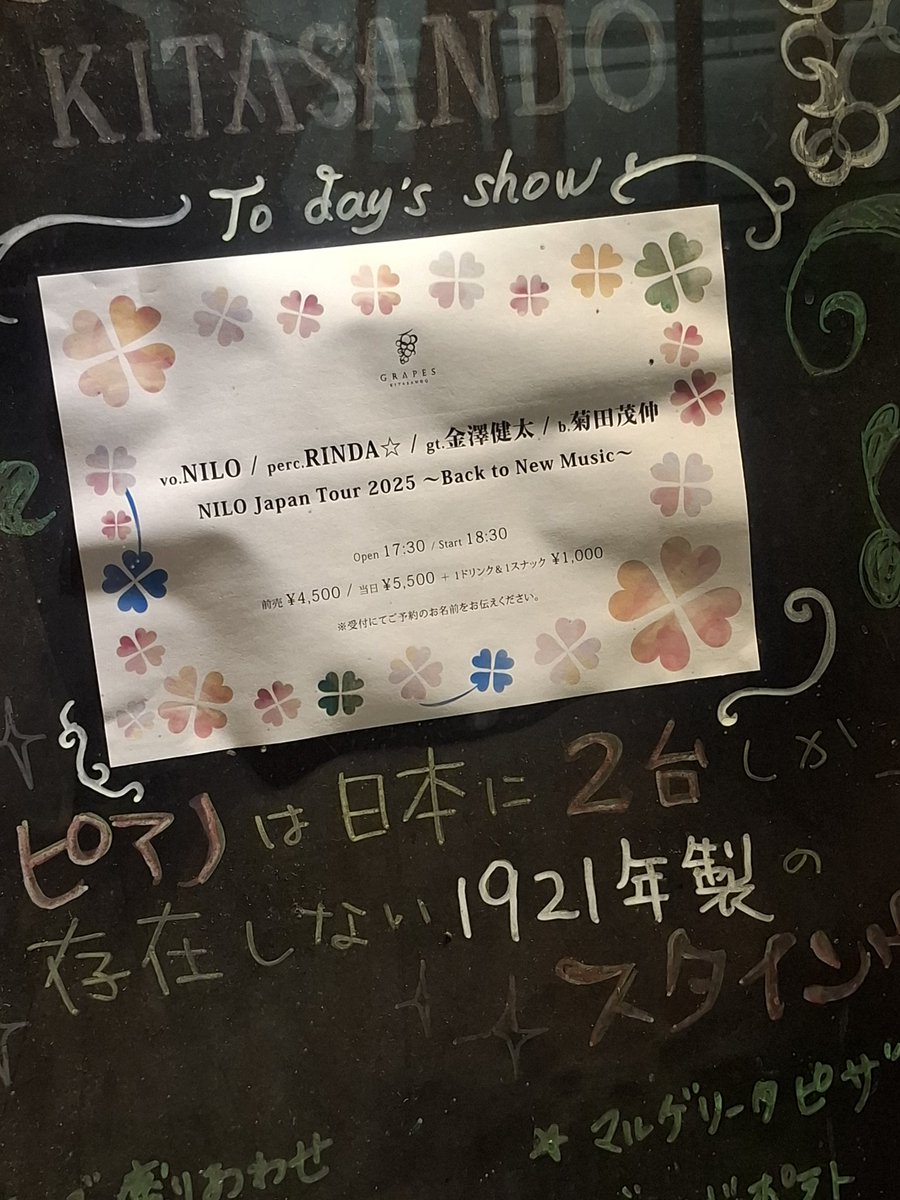 KITASANDO
To day's show
GRAPES
KITASANDO
vo.NILO / perc.RINDA☆ / gt.金澤健太 / b.菊田茂伸
NILO Japan Tour 2025 ～Back to New Music～
Open 17:30 / Start 18:30
前売 ¥4,500 / 当日 ¥5,500 + 1ドリンク&1スナック ¥1,000
※受付にてご予約のお名前をお伝えください。
ピアノは日本に2台しか
存在しない1921年製の
スタインウ
☆ マルゲリータピザ
盛りあわせ
ポテト